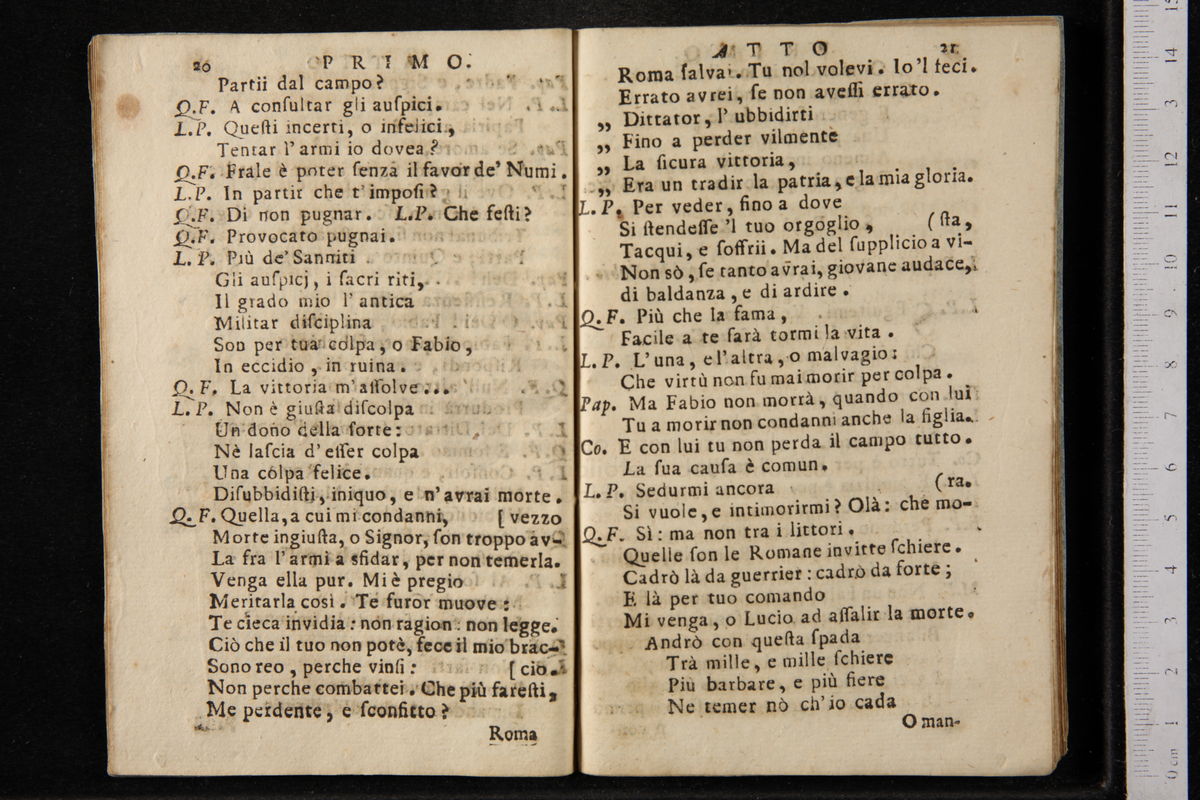 20 PRIMO.
Partii dal campo?
Q.F. A conſultar gli auſpici.
L.P. Queſti incerti, o infelici,
Tentar l'armi io dovea?
Q.F. Frale è poter ſenza il favor de' Numi.
L.P. In partir che t'impoſi?
Q.F. Di non pugnar. L.P. Che feſti?
Q.F. Provocato pugnai.
L.P. Più de' Sanniti
Gli auſpicj, i ſacri riti,
Il grado mio l'antica
Militar diſciplina
Son per tua colpa, o Fabio,
In eccidio, in ruina.
Q.F. La vittoria m'aſſolve...
L.P. Non è giuſta diſcolpa
Un dono della ſorte:
Nè laſcia d'eſſer colpa
Una colpa felice.
Diſubbidiſti, iniquo, e n'avrai morte.
Q.F. Quella, a cui mi condanni, [vezzo
Morte ingiuſta, o Signor, ſon troppo av-
La fra l'armi a sfidar, per non temerla.
Venga ella pur. Mi è pregio
Meritarla così. Te furor muove:
Te cieca invidia: non ragion: non legge.
Ciò che il tuo non potè, fece il mio brac-
Sono reo, perche vinſi: [cio.
Non perche combattei. Che più fareſti,
Me perdente, e ſconfitto?
Roma
ATTO 21
Roma ſalvai. Tu nol volevi. Io'l feci.
Errato avrei, ſe non aveſſi errato.
„ Dittator, l'ubbidirti
„ Fino a perder vilmente
„ La ſicura vittoria,
„ Era un tradir la patria, e la mia gloria.
L.P. Per veder, fino a dove
Si ſtendeſſe 'l tuo orgoglio, (ſta,
Tacqui, e ſoffrii. Ma del ſupplicio a vi-
Non sò, ſe tanto avrai, giovane audace,
di baldanza, e di ardire.
Q.F. Più che la fama,
Facile a te farà tormi la vita.
L.P. L'una, e l'altra, o malvagio:
Che virtù non fu mai morir per colpa.
Pap. Ma Fabio non morrà, quando con lui
Tu a morir non condanni anche la figlia.
Co. E con lui tu non perda il campo tutto.
La ſua cauſa è comun.
L.P. Sedurmi ancora (ra.
Si vuole, e intimorirmi? Olà: che mo-
Q.F. Sì: ma non tra i littori.
Quelle ſon le Romane invitte ſchiere.
Cadrò là da guerrier: cadrò da forte;
E là per tuo comando
Mi venga, o Lucio ad aſſalir la morte.
Andrò con queſta ſpada
Trà mille, e mille ſchiere
Più barbare, e più fiere
Ne temer nò ch'io cada
O man-
0 cm 1 2 3 4 5 6 7 8 9 10 11 12 13 14 15